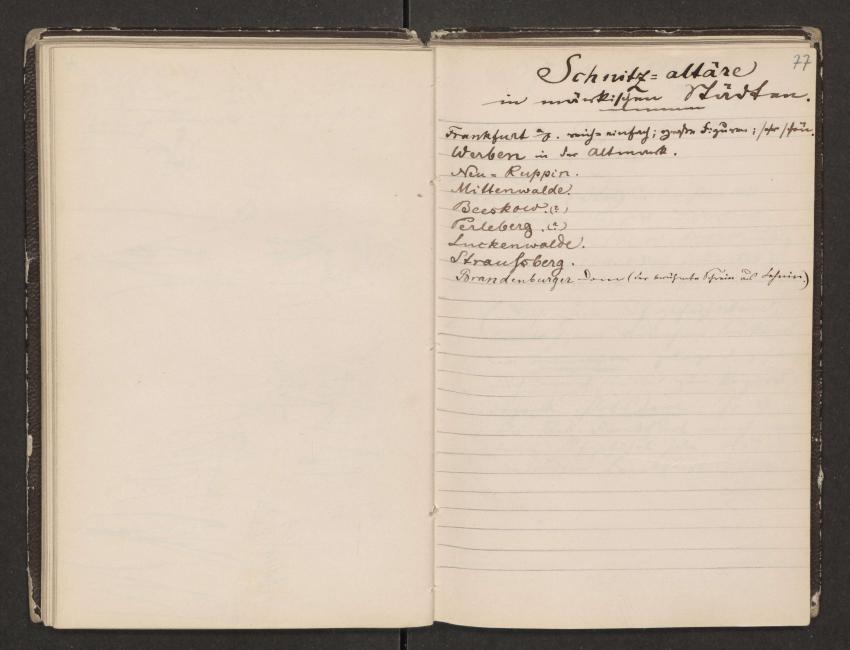 77
Schnitz-altäre
in märkischen Städten.
Frankfurt a/O. reich-einfach; große Figuren; sehr schön.
Werben in der Altmark.
Neu-Ruppin.
Mittenwalde.
Beeskow.(?)
Perleberg.(?)
Luckenwalde.
Straußberg.
Brandenburger Dom (der berühmte Schrein aus Lehnin.)